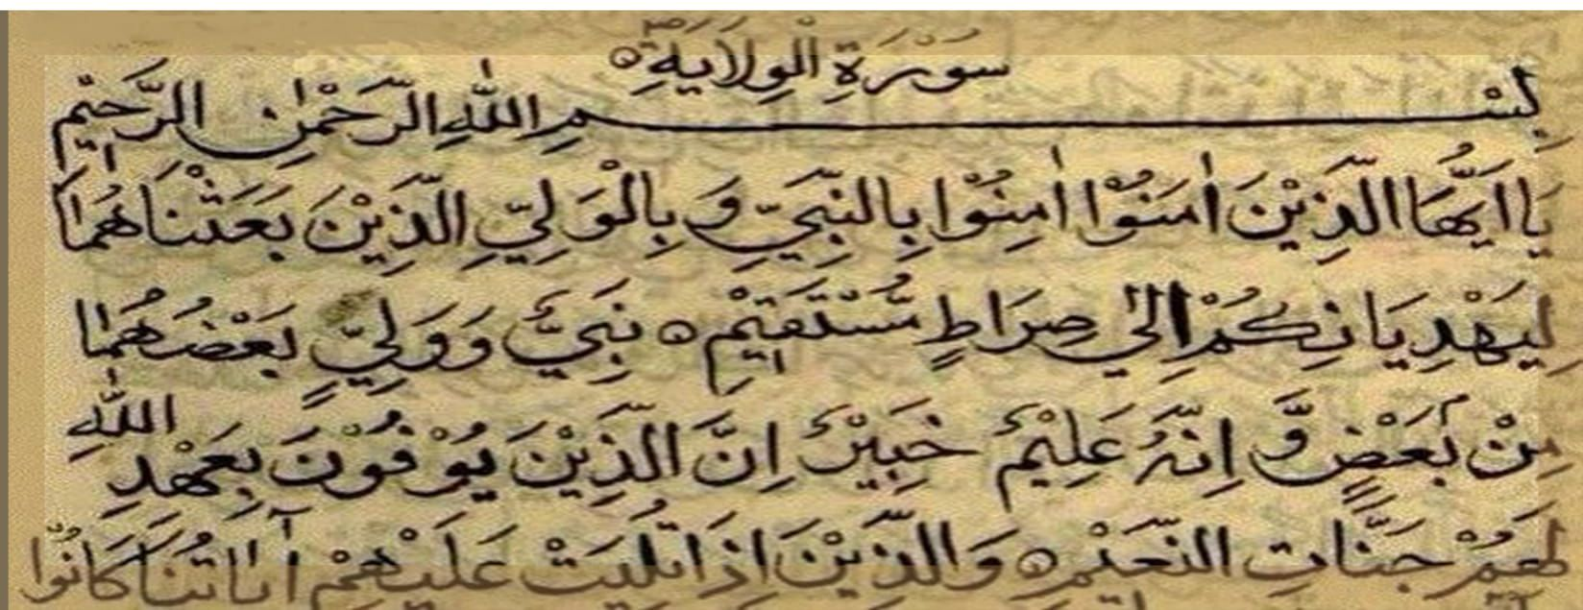 سُوْرَةِ الْوِلَايَةِ
بِسْمِ اللّٰهِ الرَّحْمٰنِ الرَّحِيْمِ
يَااَيُّهَا الَّذِيْنَ اٰمَنُوْا اٰمِنُوْا بِالنَّبِيِّ وَ بِالْوَلِيِّ الَّذَيْنِ بَعَثْنَاهُمَا
لِيَهْدِيَانِكُمْ اِلٰي صِرَاطٍ مُّسْتَقِيْمٍ ۝ نَبِيٌّ وَوَلِيٌّ بَعْضُهُمَا
مِنْ بَعْضٍ وَّ اِنَّهُ عَلِيْمٌ خَبِيْرٌ اِنَّ الَّذِيْنَ يُوْفُوْنَ بِعَهْدِ اللّٰهِ
لَهُمْ جَنَّاتِ النَّعِيْمِ ۝ وَالَّذِيْنَ اِذَا تُلِيَتْ عَلَيْهِمْ آيَاتُنَا كَانُوْا